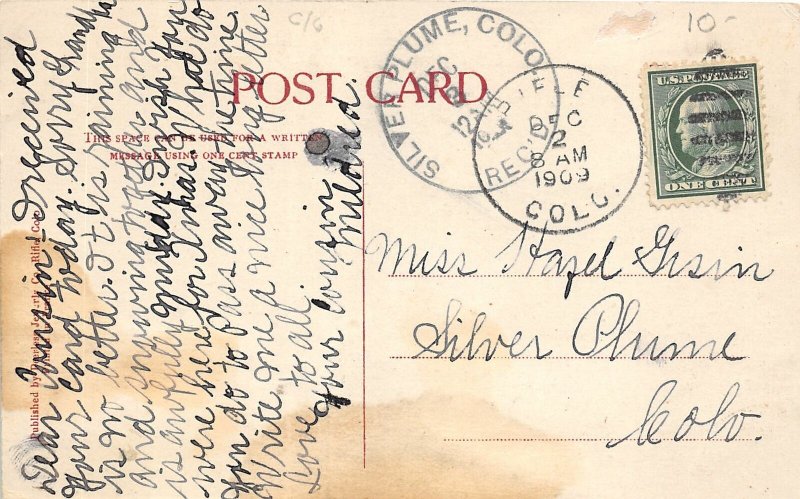 C/6
10-
POST CARD
THIS SPACE CAN BE USED FOR A WRITTEN
MESSAGE USING ONE CENT STAMP
SILVER PLUME, COLO.
DEC
1909
REC'D.
DEC
2
8 AM
1909
COLO.
U.S. POSTAGE
ONE CENT
Dear Cousin - I received
Your card today. Sorry Grandma
is no better. It is raining
and snowing today and
is awfully muddy. I wish you
were here for Xmas. What do
You do to Pass away the time.
Write me a nice long letter
Love to all.
Your cousin
Mildred.
Miss Hazel Gisin
Silver Plume
Colo.
Published by
Rifle, Colo.